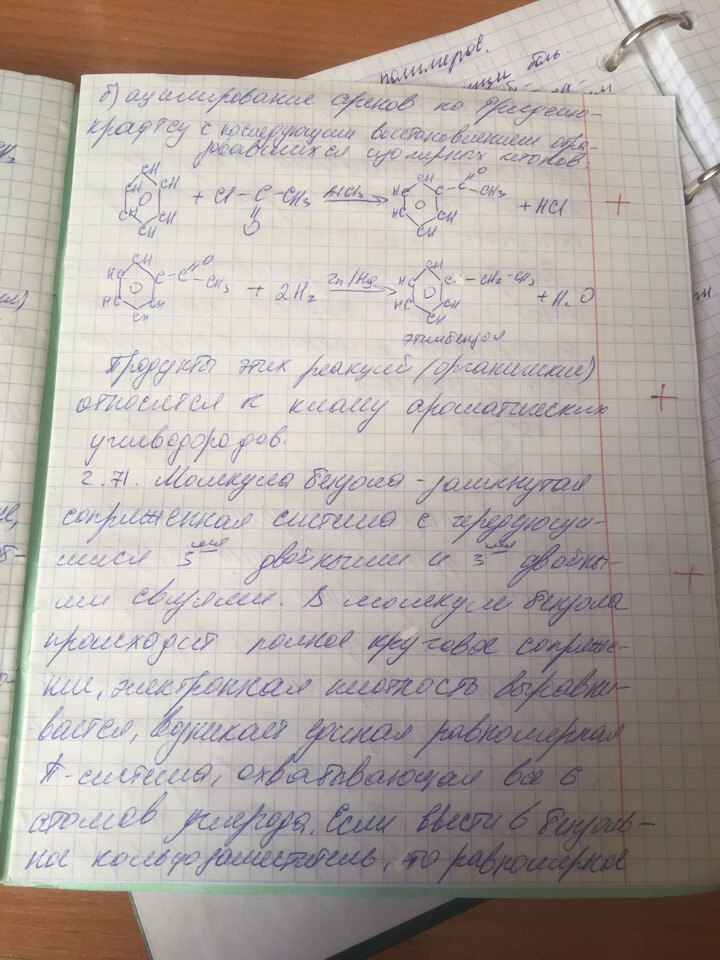 полимеров.
б) ацилирование аренов по Фриделю-
крафтсу с последующим восстановлением обра-
зовавшихся изомерных кетонов.
+ Cl - C - CH3 AlCl3 → C CH3 + HCl
O
+ 2H2 Zn/Hg → - CH2 - CH3 + H2O
этилбензол
Продукты этих реакций (органические)
относятся к классу ароматических
углеводородов.
2.71. Молекула бензола - замкнутая
сопряженная система с чередующи-
мися 3мя двойными и 3мя двойны-
ми связями. В молекуле бензола
происходит полное круговое сопряже-
ние, электронная плотность выравни-
вается, возникает единая равномерная
π-система, охватывающая все 6
атомов углерода. Если ввести в бензоль-
ное кольцо заместитель, то равномерное